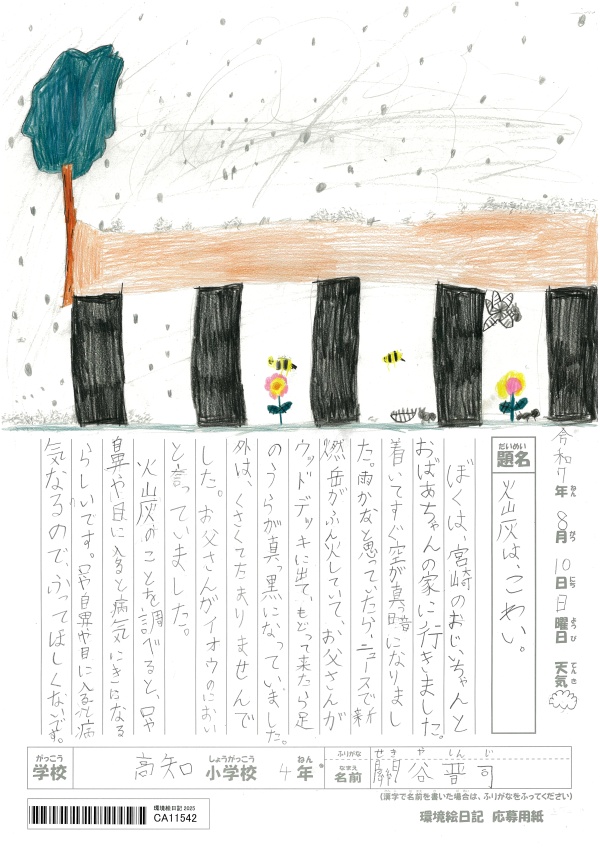 令和7年 8月 10日 日曜日 天気
ねん がつ にち ようび てんき
だいめい
題名 火山灰は、こわい。
ぼくは、宮崎のおじいちゃんと
おばあちゃんの家に行きました。
着いてすぐ空が真っ暗になりまし
た。雨かなと思っていたら、ニュースで新
燃岳がふん火していて、お父さんが
ウッドデッキに出て、もどって来たら足
のうらが真っ黒になっていました。
外は、くさくてたまりませんで
した。お父さんがイオウのにおい
と言っていました。
火山灰のことを調べると、口や
鼻や目に入ると病気にきになる
らしいです。口や鼻や目に入ると病
気なるので、ふってほしくないです。
がっこう しょうがっこう ねん
学校 高知 小学校 4年
ふりがな せき や しん じ
なまえ
名前 谷晋司
(漢字で名前を書いた場合は、ふりがなをふってください)
環境絵日記 2025
CA11542
環境絵日記 応募用紙